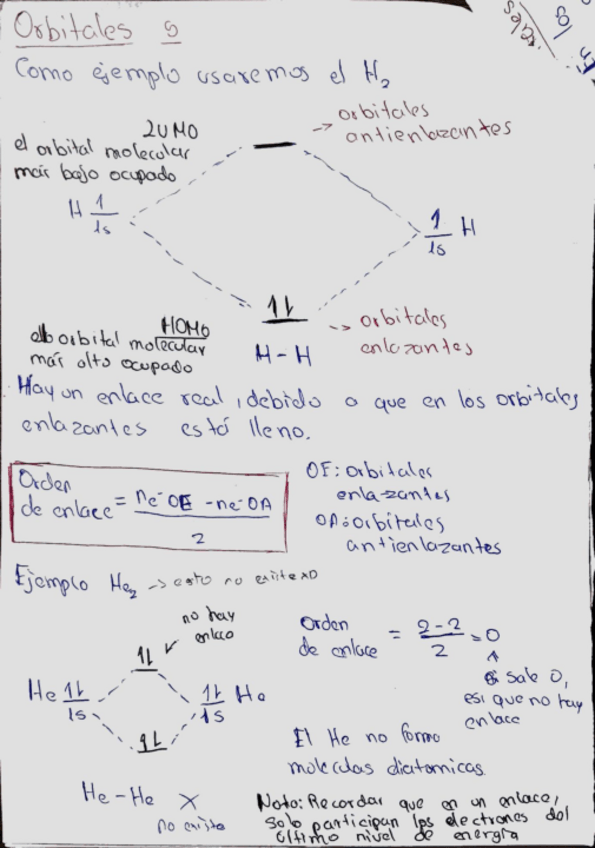 Orbitales s
Como ejemplo usaremos el H2
LUMO
el orbital molecular
más bajo ocupado
-> orbitales
antienlazantes
H 1
1s
1 H
1s
HOMO
orbital molecular
más alto ocupado
H - H
--> orbitales
enlazantes
Hay un enlace real, debido a que en los orbitales
enlazantes está lleno.
Orden
de enlace = ne⁻OE - ne⁻OA
2
OE: orbitales
enlazantes
OA: orbitales
antienlazantes
Ejemplo He2 -> esto no existe xD
no hay
enlace
He 1L
1s
1L He
1s
Orden
de enlace = 2-2 = 0
2
si sale 0,
es que no hay
enlace
El He no forma
moleculas diatomicas.
He - He X
no existe
Nota: Recordar que en un enlace,
solo participan los electrones del
último nivel de energía